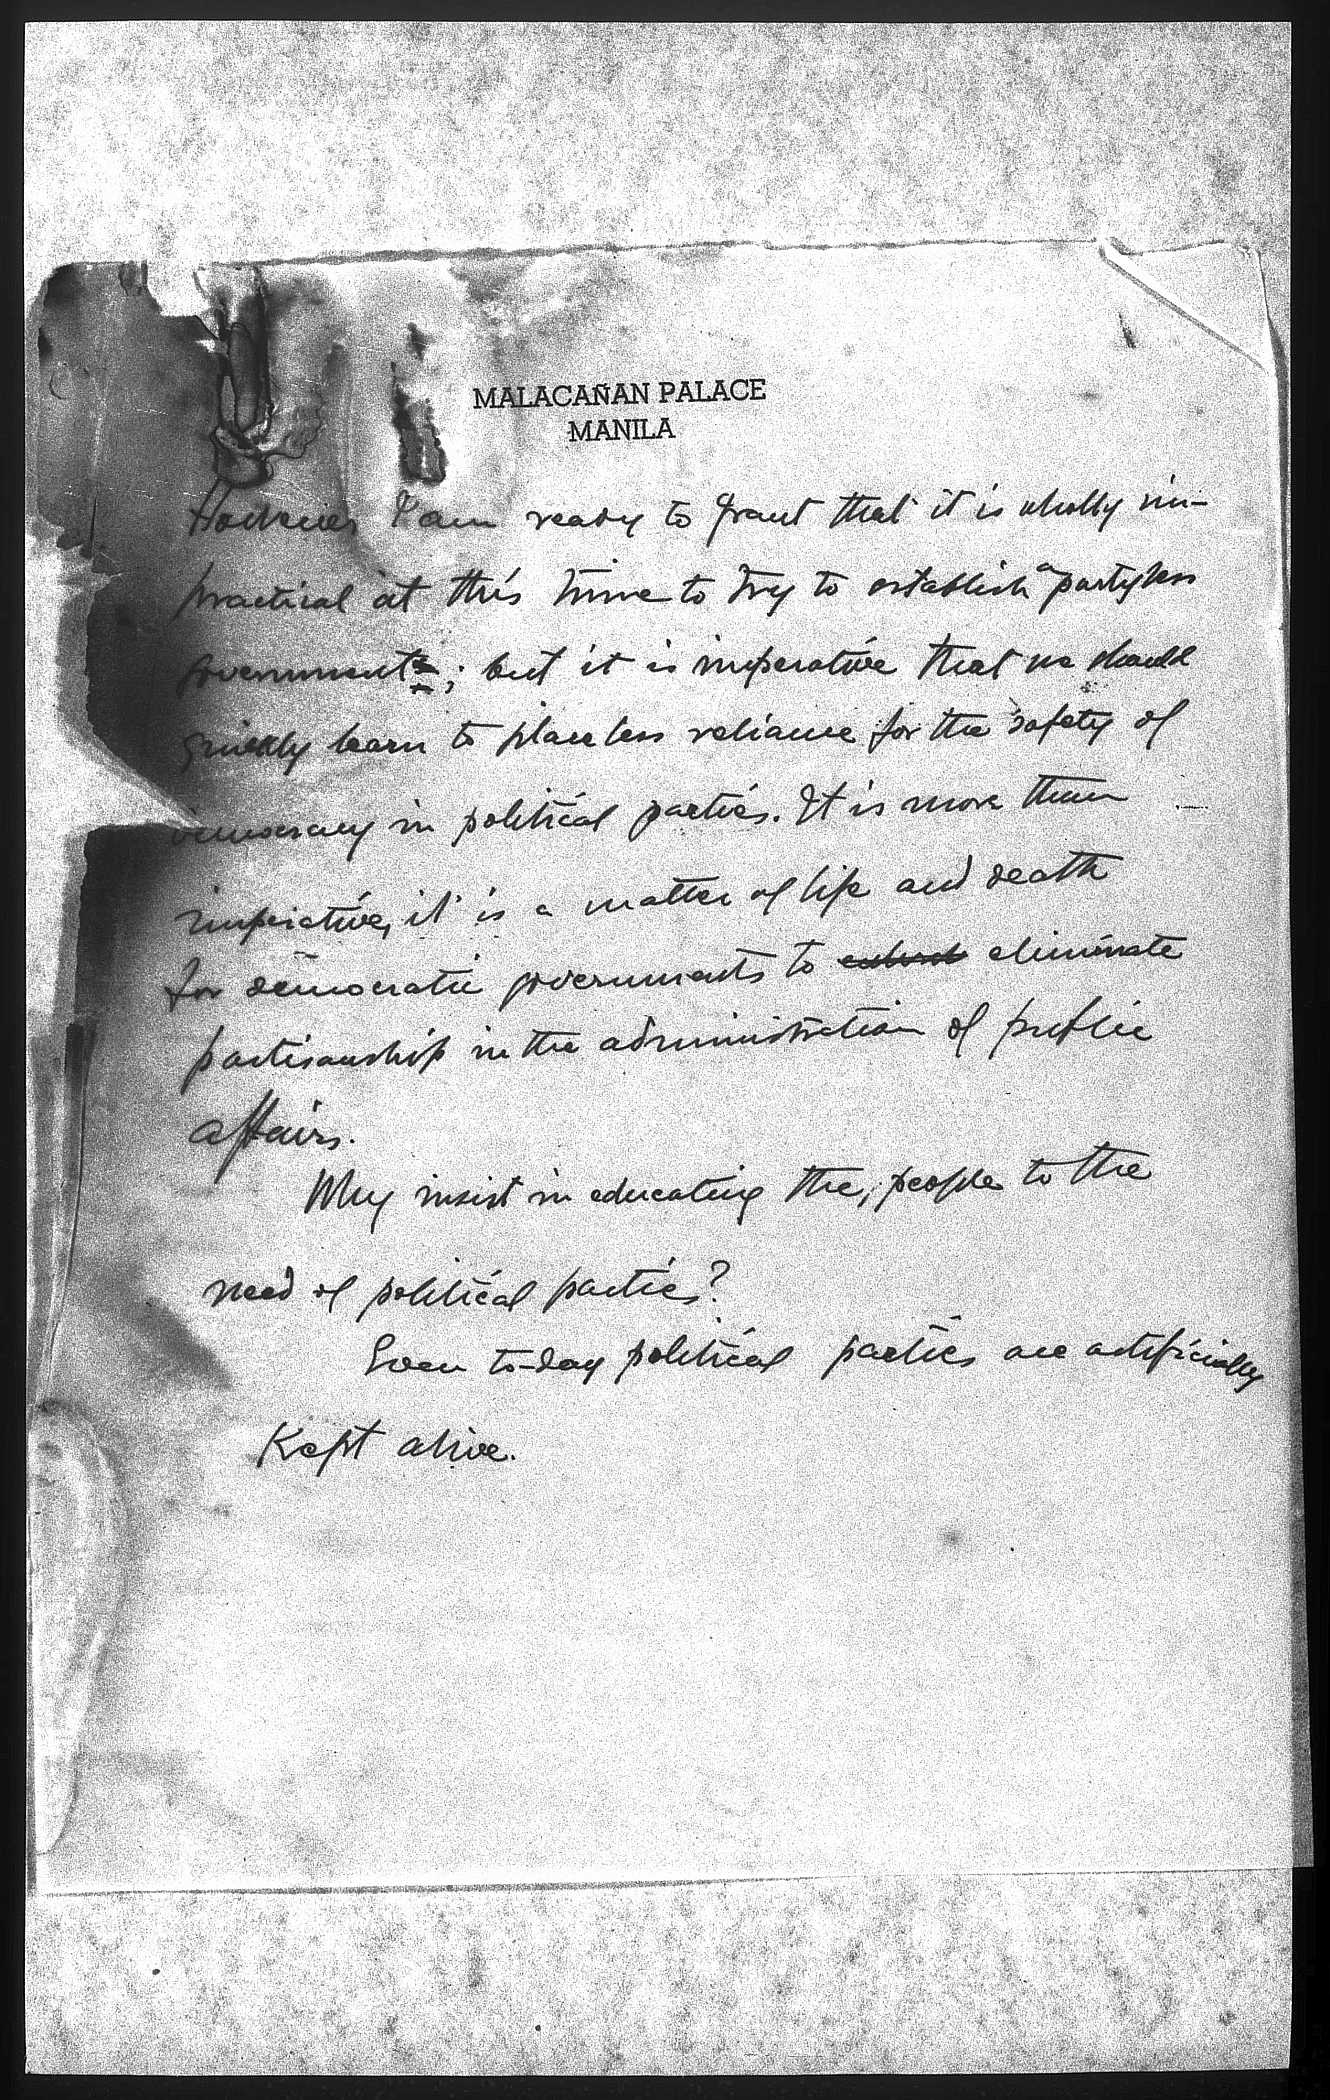 MALACAÑAN PALACE
MANILA
However, I am ready to grant that it is wholly im-
practical at this time to try to establish a partyless
government; but it is imperative that we should
quickly learn to place less reliance for the safety of
democracy in political parties. It is more than
imperative, it is a matter of life and death
for democratic governments to eliminate
partisanship in the administration of public
affairs.
Why insist in educating the people to the
need of political parties?
Even to-day political parties are artificially
Kept alive.